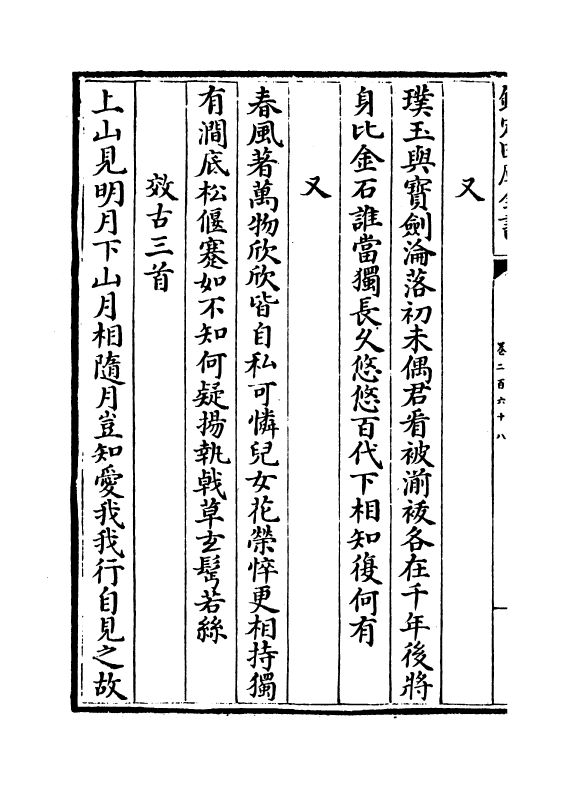 欽定四庫全書
卷二百六十八
又
璞玉與寶劍淪落初未偶君看被湔祓各在千年後將
身比金石誰當獨長久悠悠百代下相知復何有
又
春風著萬物欣欣皆自私可憐兒女花榮悴更相持獨
有澗底松偃蹇如不知何疑揚執戟草玄鬢若絲
效古三首
上山見明月下山月相隨月豈知愛我我行自見之故